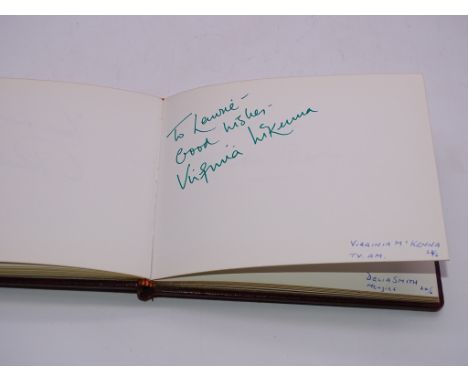 To Laurie -
Good wishes -
Virginia McKenna
VIRGINIA McKENNA
TV. AM.
DELIA SMITH